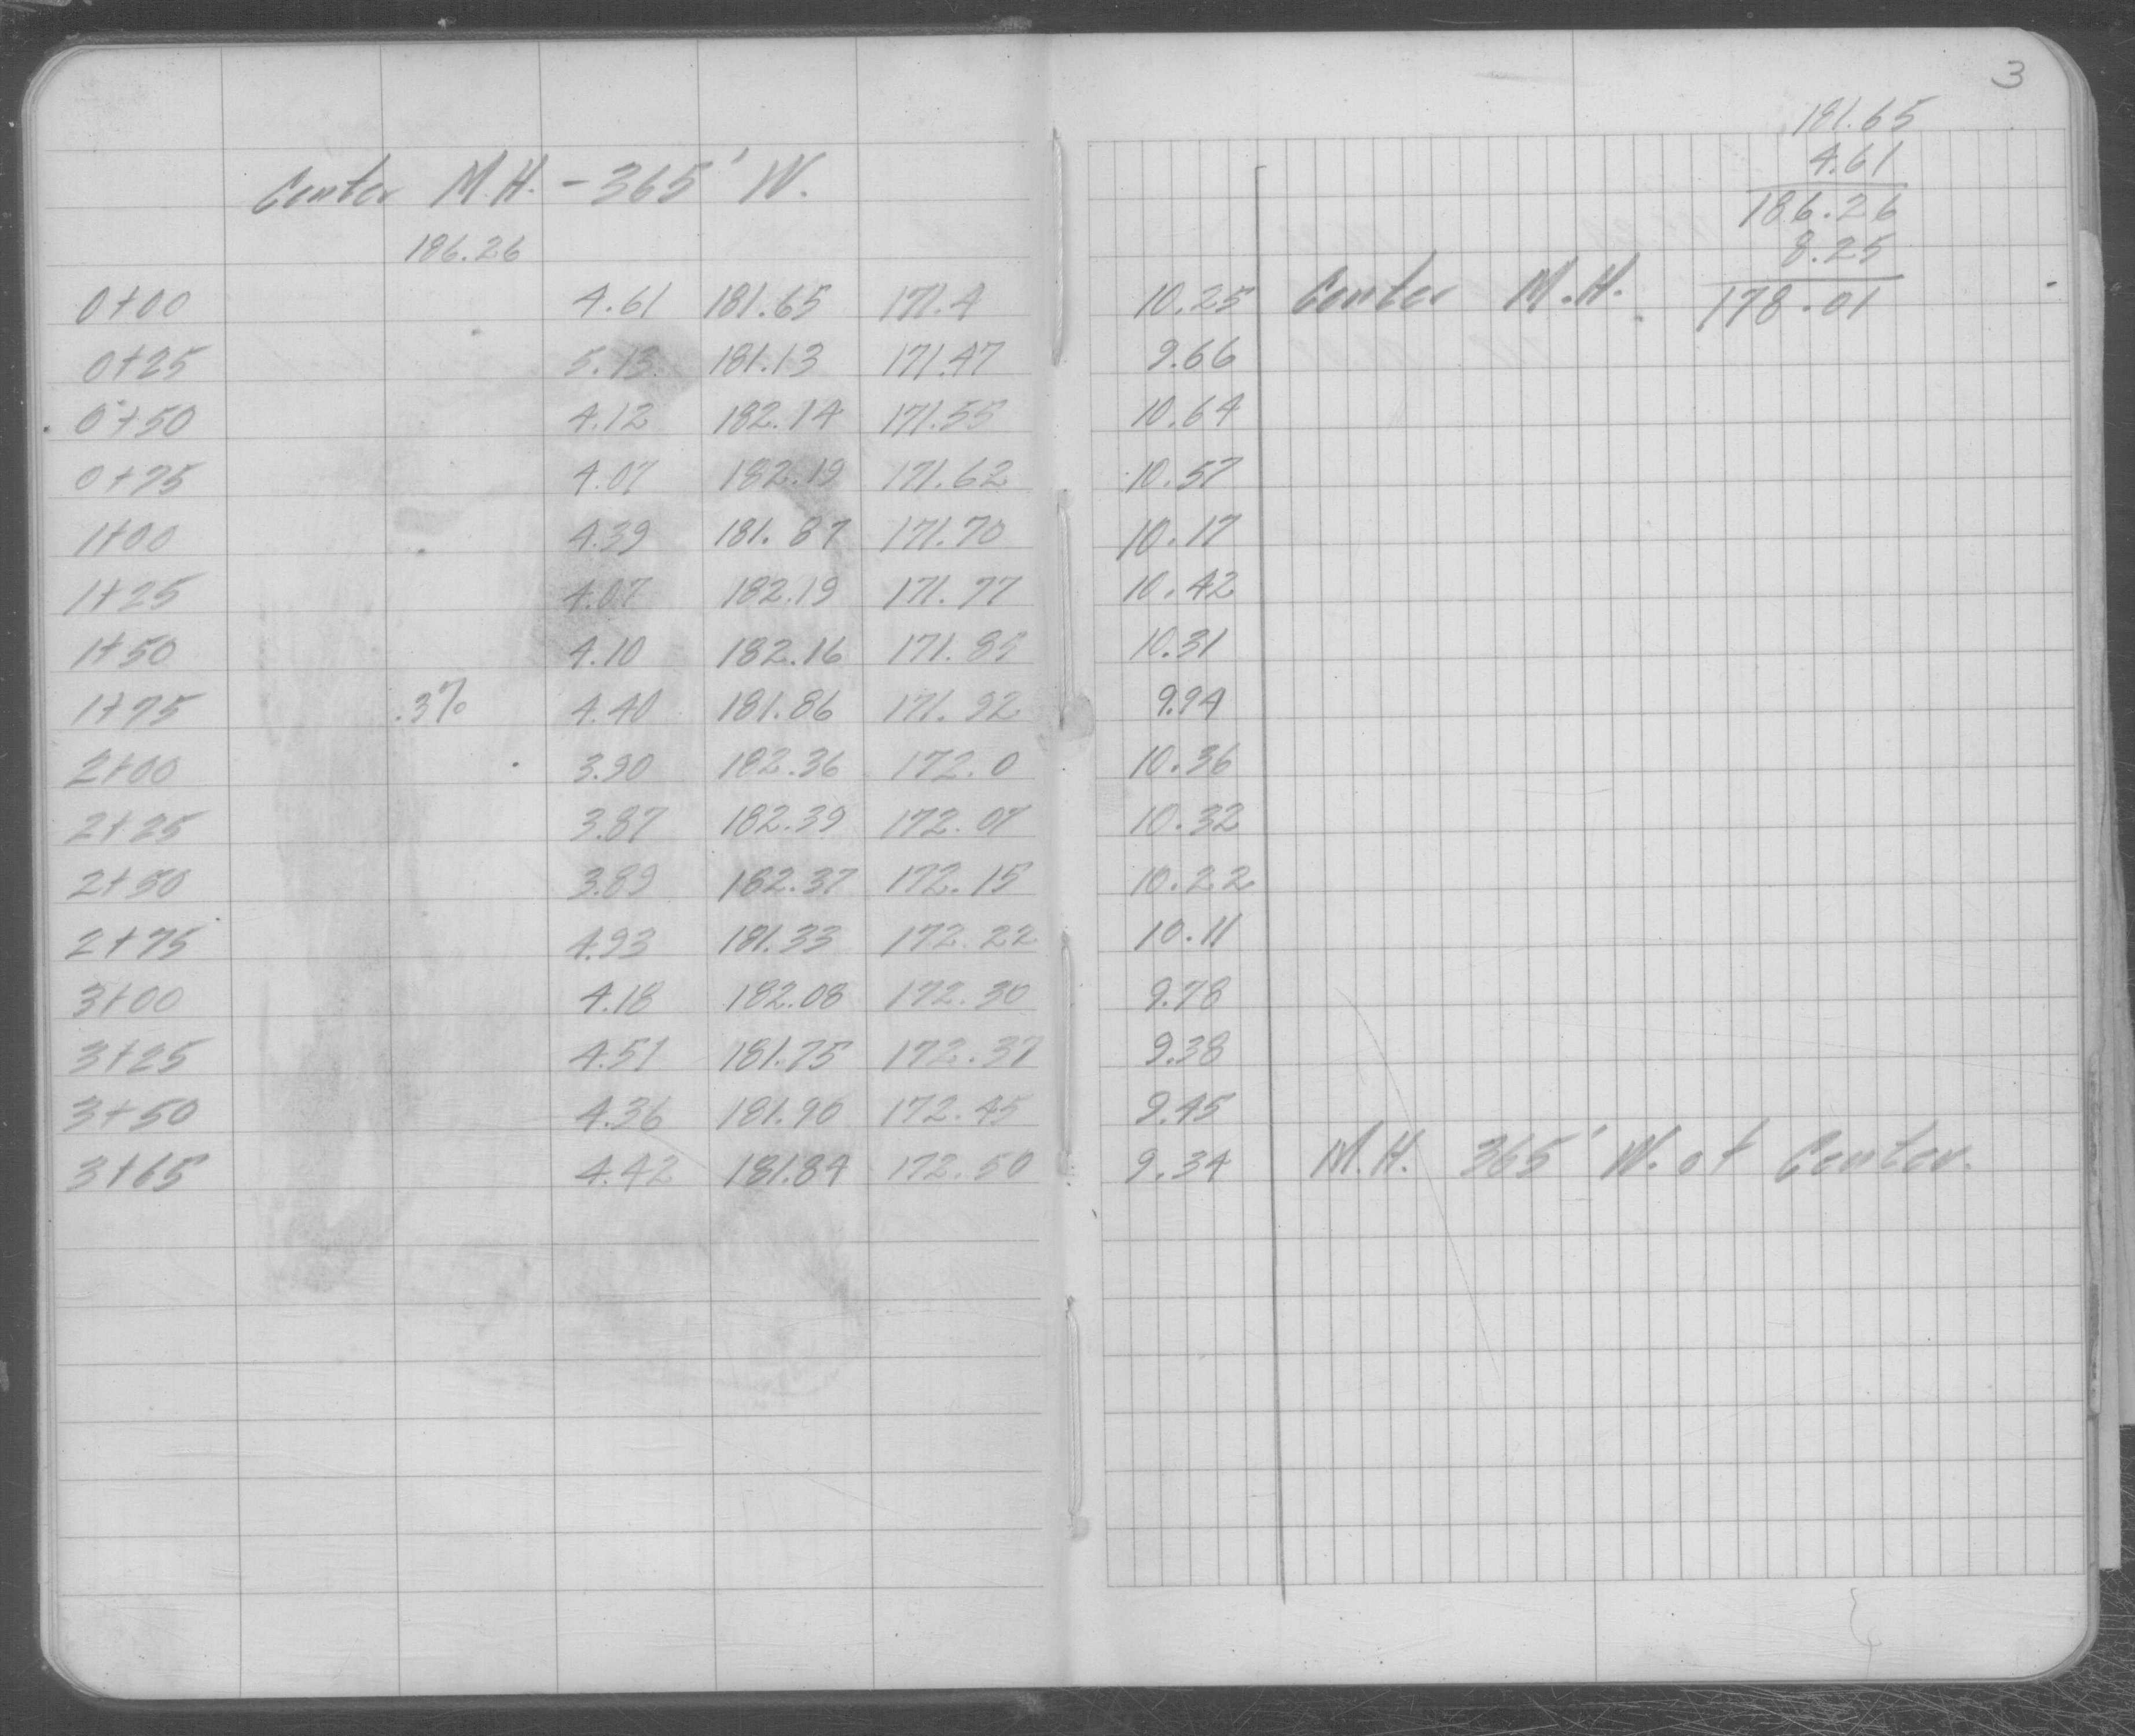 3
Center M.H. - 365' W.
186.26
0+00 4.61 181.65 171.4
0+25 5.13 181.13 171.47
0+50 4.12 182.14 171.55
0+75 4.07 182.19 171.62
1+00 4.39 181.87 171.70
1+25 4.07 182.19 171.77
1+50 4.10 182.16 171.85
1+75 .3% 4.40 181.86 171.92
2+00 3.90 182.36 172.0
2+25 3.87 182.39 172.07
2+50 3.89 182.37 172.15
2+75 4.93 181.33 172.22
3+00 4.18 182.08 172.30
3+25 4.51 181.75 172.37
3+50 4.36 181.90 172.45
3+65 4.42 181.84 172.50
181.65
4.61
186.26
8.25
178.01
10.25 Center M.H.
9.66
10.64
10.57
10.17
10.42
10.31
9.94
10.36
10.32
10.22
10.11
9.78
9.38
9.45
9.34 M.H. 365' W. of Center.